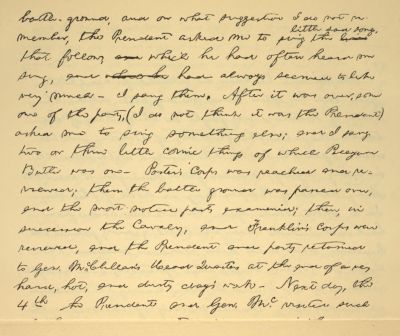 battle-ground, and on what suggestion I do not re-
member, the President asked me to sing the little sad song,
that follows which he had often heard me
sing, and had always seemed to like
very much. I sang them. After it was over, some
one of the party, (I do not think it was the President)
asked me to sing something else; and I sang
two or three little comic things of which Picayune
Butler was one. Porter's Corps was reached and re-
viewed; then the battle ground was passed over,
and the most noted parts examined; then, in
succession the Cavalry, and Franklin's Corps were
reviewed, and the President and party returned
to Gen. McClellan's Head Quarters at the end of a very
hard, hot, and dusty day's work. Next day, the
4th the President and Gen. Mc visited such